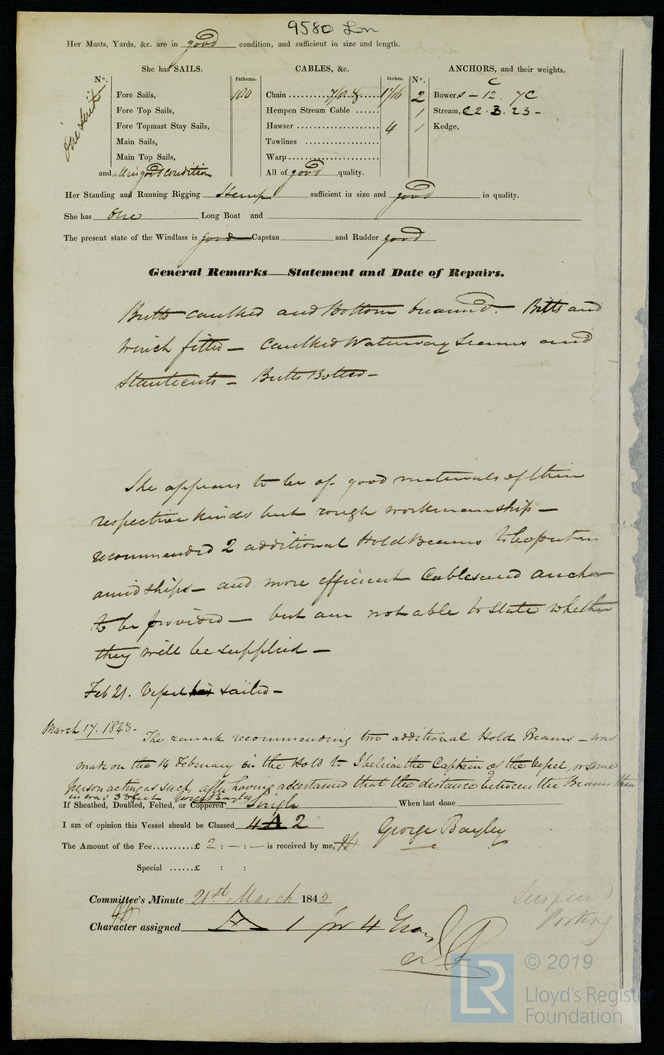 9580 Lon
Her Masts, Yards, &c. are in good condition, and sufficient in size and length.
She has SAILS.
CABLES, &c.
ANCHORS, and their weights.
No.
Fathoms.
Inches.
No.
C
One Suit
Fore Sails,
100
Chain
1 1/16
2
Bowers - 12. 7C
Fore Top Sails,
Hempen Stream Cable
1
Stream, C2.3.23-
Fore Topmast Stay Sails,
Hawser
4
1
Kedge,
Main Sails,
Towlines
Main Top Sails,
Warp
and all in good condition
All of good quality.
Her Standing and Running Rigging Hemp sufficient in size and good in quality.
She has One Long Boat and
The present state of the Windlass is good Capstan and Rudder good
General Remarks—Statement and Date of Repairs.
Butts caulked and Bottom breamed. Bitts and
winch fitted - Caulked Waterway Seams and
Stantients - Butts Bolted -
She appears to be of good materials of their
respective kinds but rough workmanship -
recommended 2 additional Hold Beams to be put in
amidships - and more efficient Cables and anchor
to be provided - but am not able to state whether
they will be supplied -
Feb 21. Vessel has sailed -
March 17. 1843. The remark recommending two additional Hold Beams - was
made on the 14 February in the Hold to I believe the Captain of the Vessel, or some
person acting as such, after having ascertained that the distance between the Beams then
in was 3 feet George Bayley
If Sheathed, Doubled, Felted, or Coppered Single When last done
I am of opinion this Vessel should be Classed 4 A 2
The Amount of the Fee £ 2 : — : — is received by me,
George Bayley
Special £ : :
Committee's Minute 21st March 1843
Character assigned A 1 for 4 Years
Surfeud
Porting
LR
© 2019
Lloyd's Register
Foundation